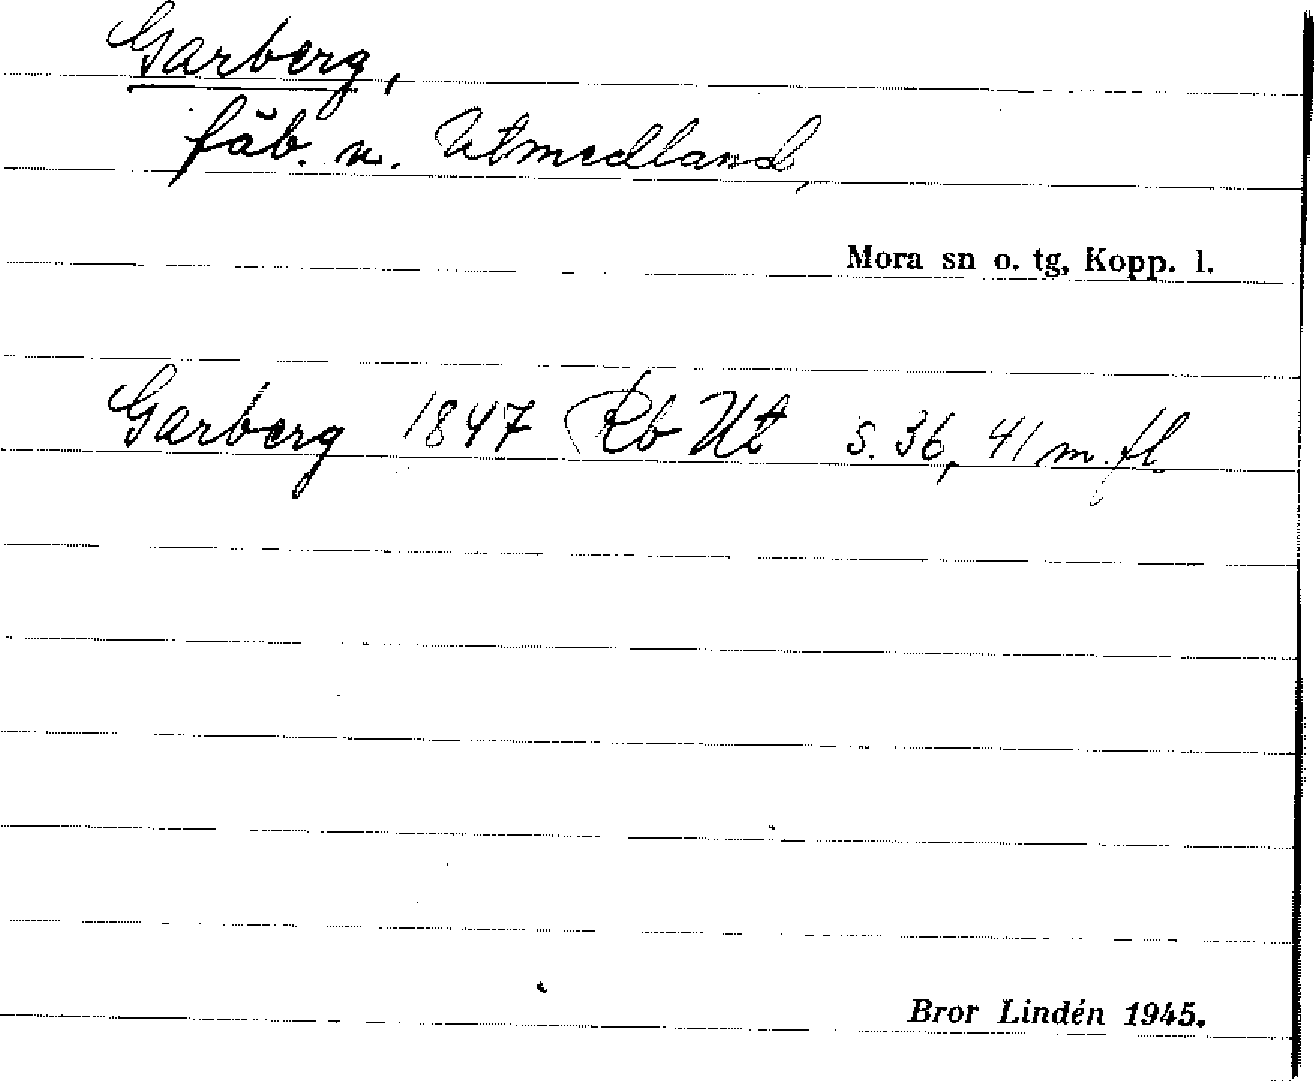 Garberg,
fäb. n. Utmedland,
Mora sn o. tg, Kopp. l.
Garberg 1847 Rb Ut s. 36, 41 m. fl.
Bror Lindén 1945.